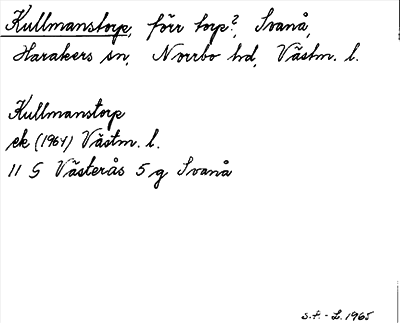 Kullmanstorp, förr torp?, Svanå,
Harakers sn, Norrbo hd, Västm. l.
Kullmanstorp
ek (1964) Västm. l.
11 G Västerås 5 g Svanå
s.f. - L. 1965